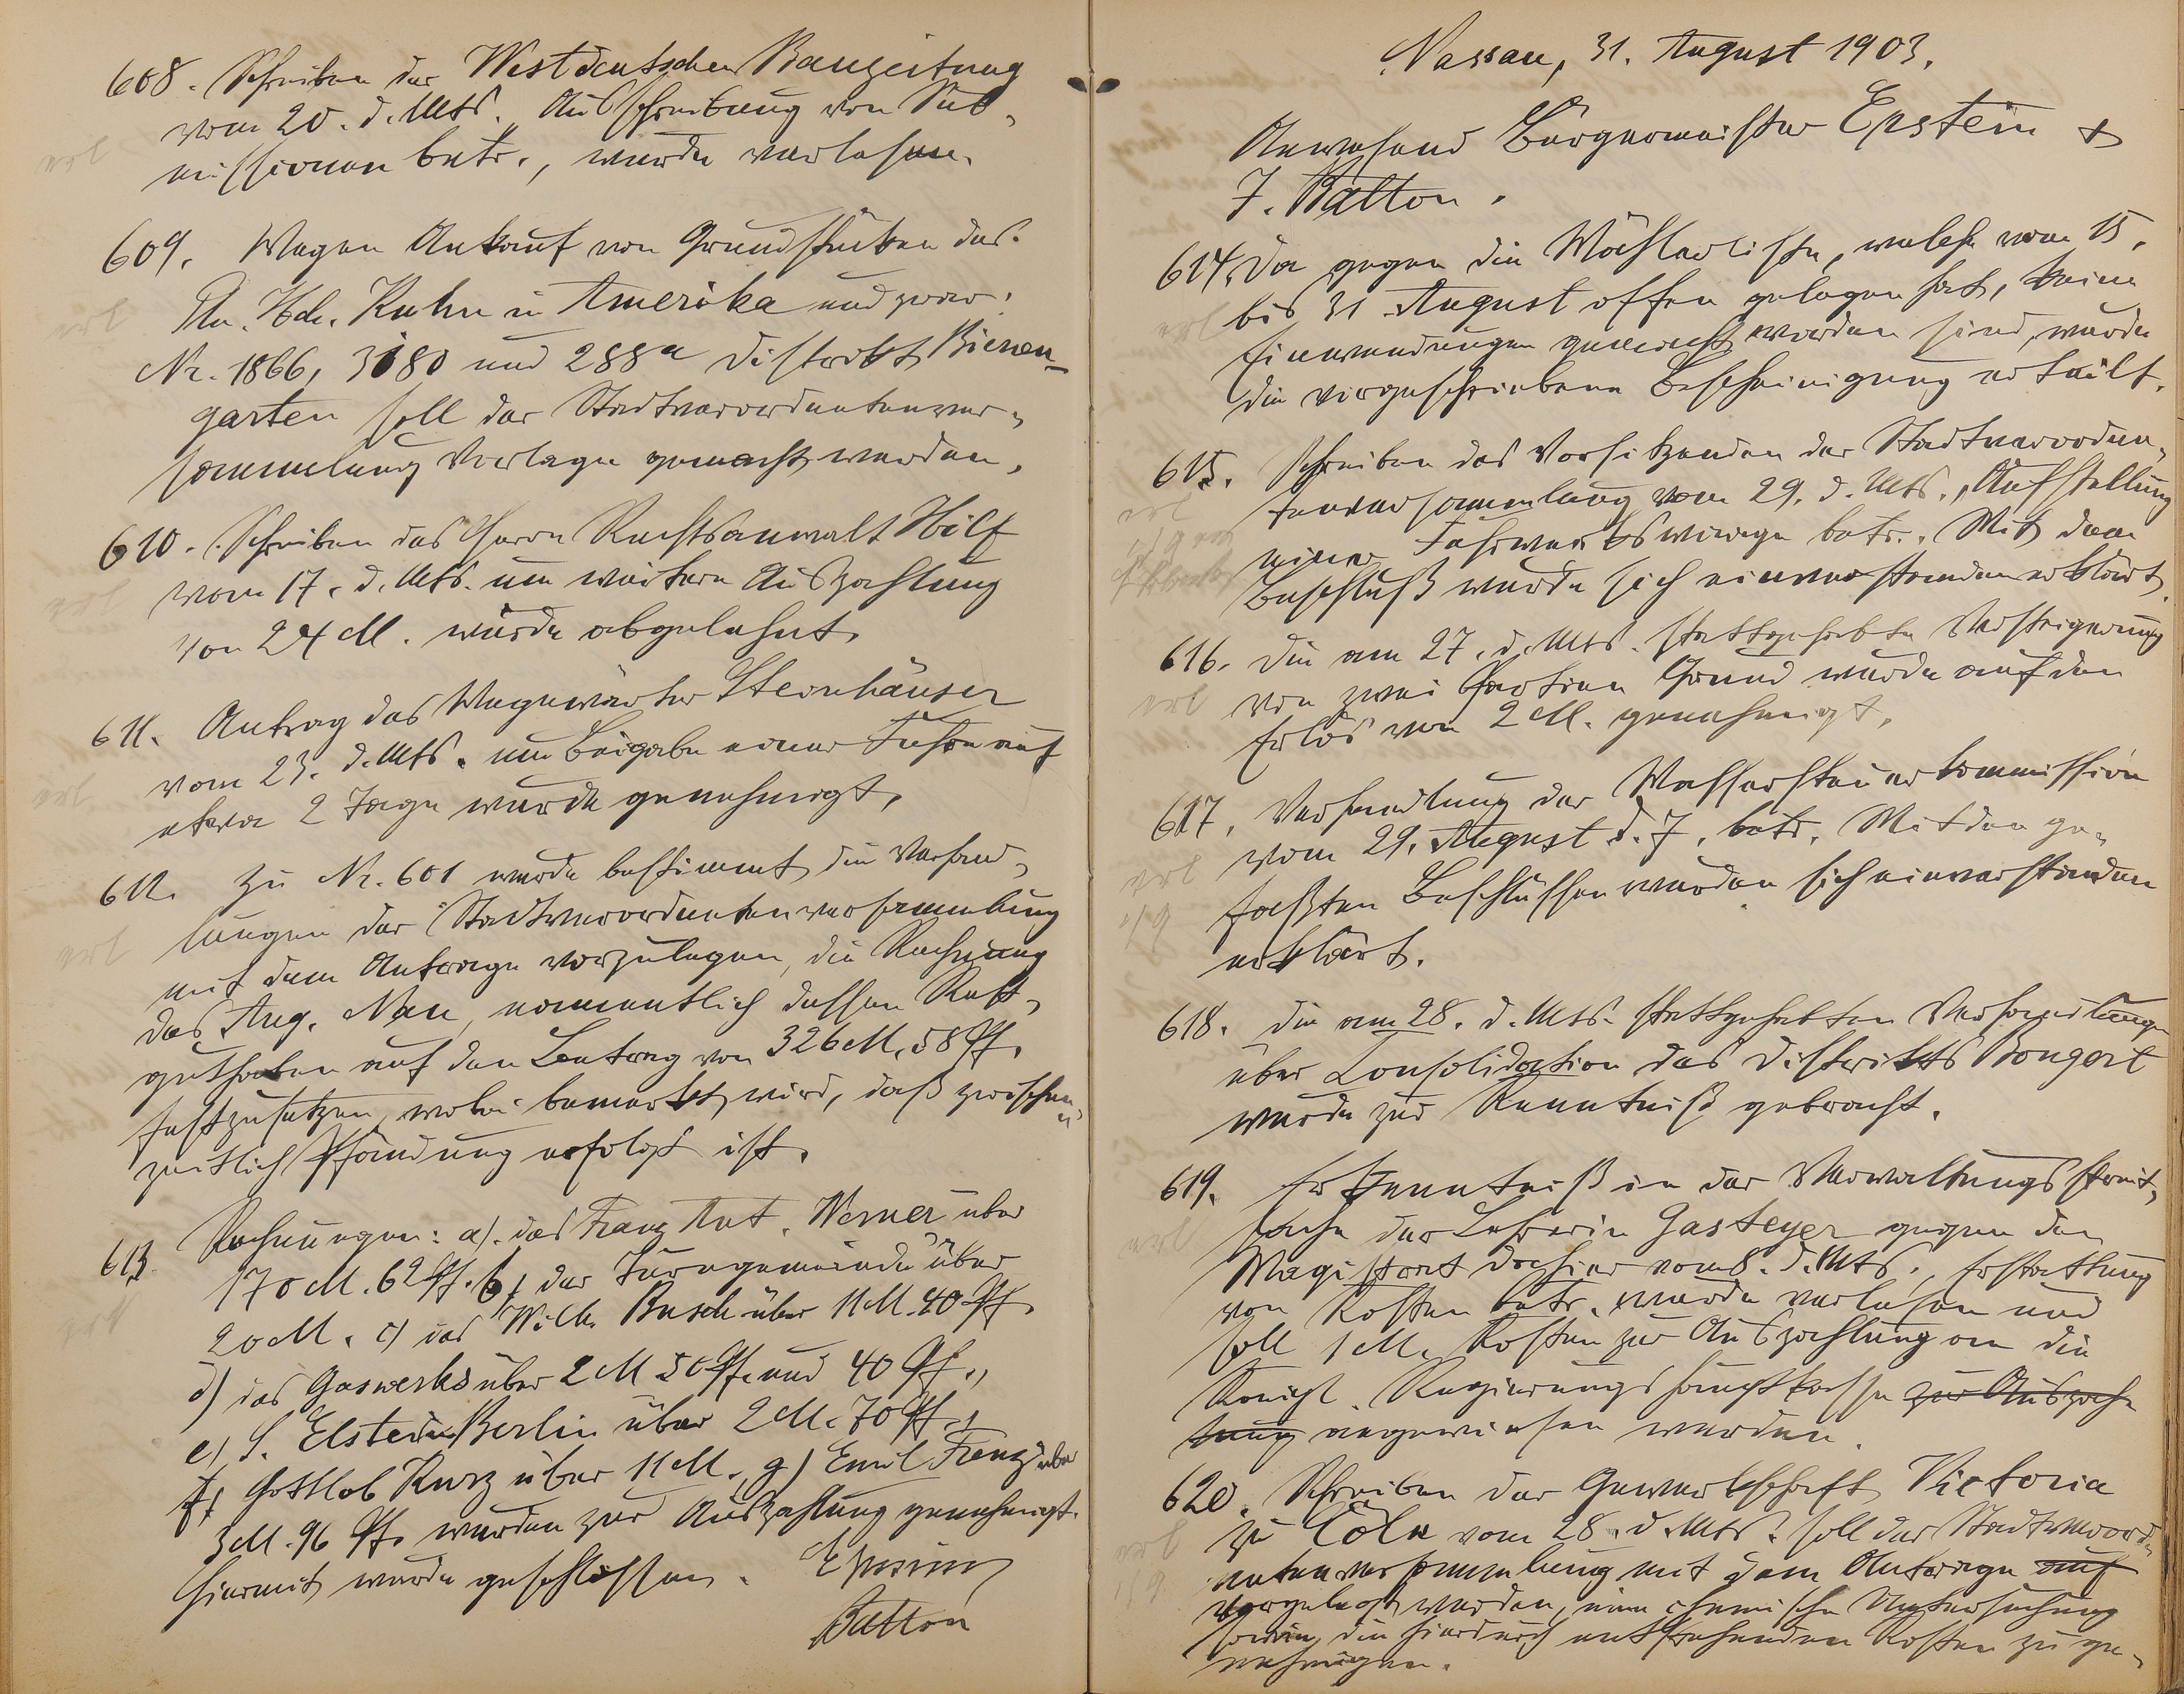 608. Schreiben der Westdeutschen Bauzeitung
vom 20. d. Mts. Ausschreibung von Sub-
missionen betr., wurde verlesen.
erl
609. Wegen Ankauf von Grundstücken des
Hch. Kuhn in Amerika und zwar:
erl
Nr. 1866, 3180 und 288a Distrikt Bienen-
garten soll der Stadtverordnetenver-
sammlung Vorlage gemacht werden.
610. Schreiben des Herrn Rechtsanwalt Hilf
vom 17. d. Mts. um weitere Auszahlung
erl
von 24 M. wurde abgelehnt.
611. Antrag des Wegewärter Steinhäuser
vom 23. d. Mts. um Beigabe einer Fuhre auf
erl
etwa 2 Tage wurde genehmigt.
612. Zu Nr. 601 wurde bestimmt die Verhand-
lungen der Stadtverordnetenversammlung
erl
mit dem Antrage vorzulegen, die Rechnung
des Aug. Nau, namentlich dessen Rest-
guthaben auf den Betrag von 326 M. 58 Pf.
festzusetzen, wobei bemerkt wird, daß zwischen-
zeitlich Pfändung erfolgt ist.
613 Rechnungen: a). des Franz Ant. Werner über
170 M. 62 Pf. b) der Turngemeinde über
erl
20 M. c) des Wilh. Busch über 11 M. 40 Pf.
d) des Gaswerks über 2 M 50 Pf. und 40 Pf.,
e) S. Elstein Berlin über 2 M. 70 Pf.,
f) Gottlob Kurz über 11 M., g) Emil Franz über
3 M. 96 Pf. wurden zur Auszahlung genehmigt.
Hiermit wurde geschlossen. Epstein
Balton
Nassau, 31. August 1903.
Anwesend Bürgermeister Epstein &
J. Balton.
614. Da gegen die Wählerliste, welche vom 15.
bis 31 August offen gelegen hat, keine
erl
Einwendungen gemacht worden sind, wurde
die vorgeschriebene Bescheinigung erteilt.
615. Schreiben des Vorsitzenden der Stadtverordne-
tenversammlung vom 29. d. Mts., Aufstellung
erl
einer Fuhrwerkswiege betr. Mit dem
Beschluß wurde sich einverstanden erklärt.
616. Die am 27. d. Mts. stattgehabte Versteigerung
von zwei Partien Grund wurde auf den
erl
Erlös von 2 M. genehmigt.
617. Verhandlung der Wassersteuerkommission
vom 29. August d. J. betr. Mit den ge-
erl
1/9
faßten Beschlüssen wurden sich einverstanden
erklärt.
618. Die am 28. d. Mts. stattgehabten Verhandlungen
über Consolidation des Distrikts Bongert
wurde zur Kenntniß gebracht.
619. Erkenntniß in der Verwaltungsstreit-
sache der Lehrerin Gasteyer gegen den
erl
Magistrat dahier vom 8. d. Mts., Erstattung
von Kosten betr. wurde verlesen und
soll 1 M. Kosten zur Auszahlung an die
Königl. Regierungshauptkasse zur Auszah-
lung angewiesen werden.
620. Schreiben der Gewerkschaft Victoria
zu Cöln vom 28. d. Mts. soll der Stadtverord-
erl
1/9
netenversammlung mit dem Antrage auf
vorgelegt werden, eine chemische Untersuchung
sowie die hierdurch entstehenden Kosten zu ge-
nehmigen.